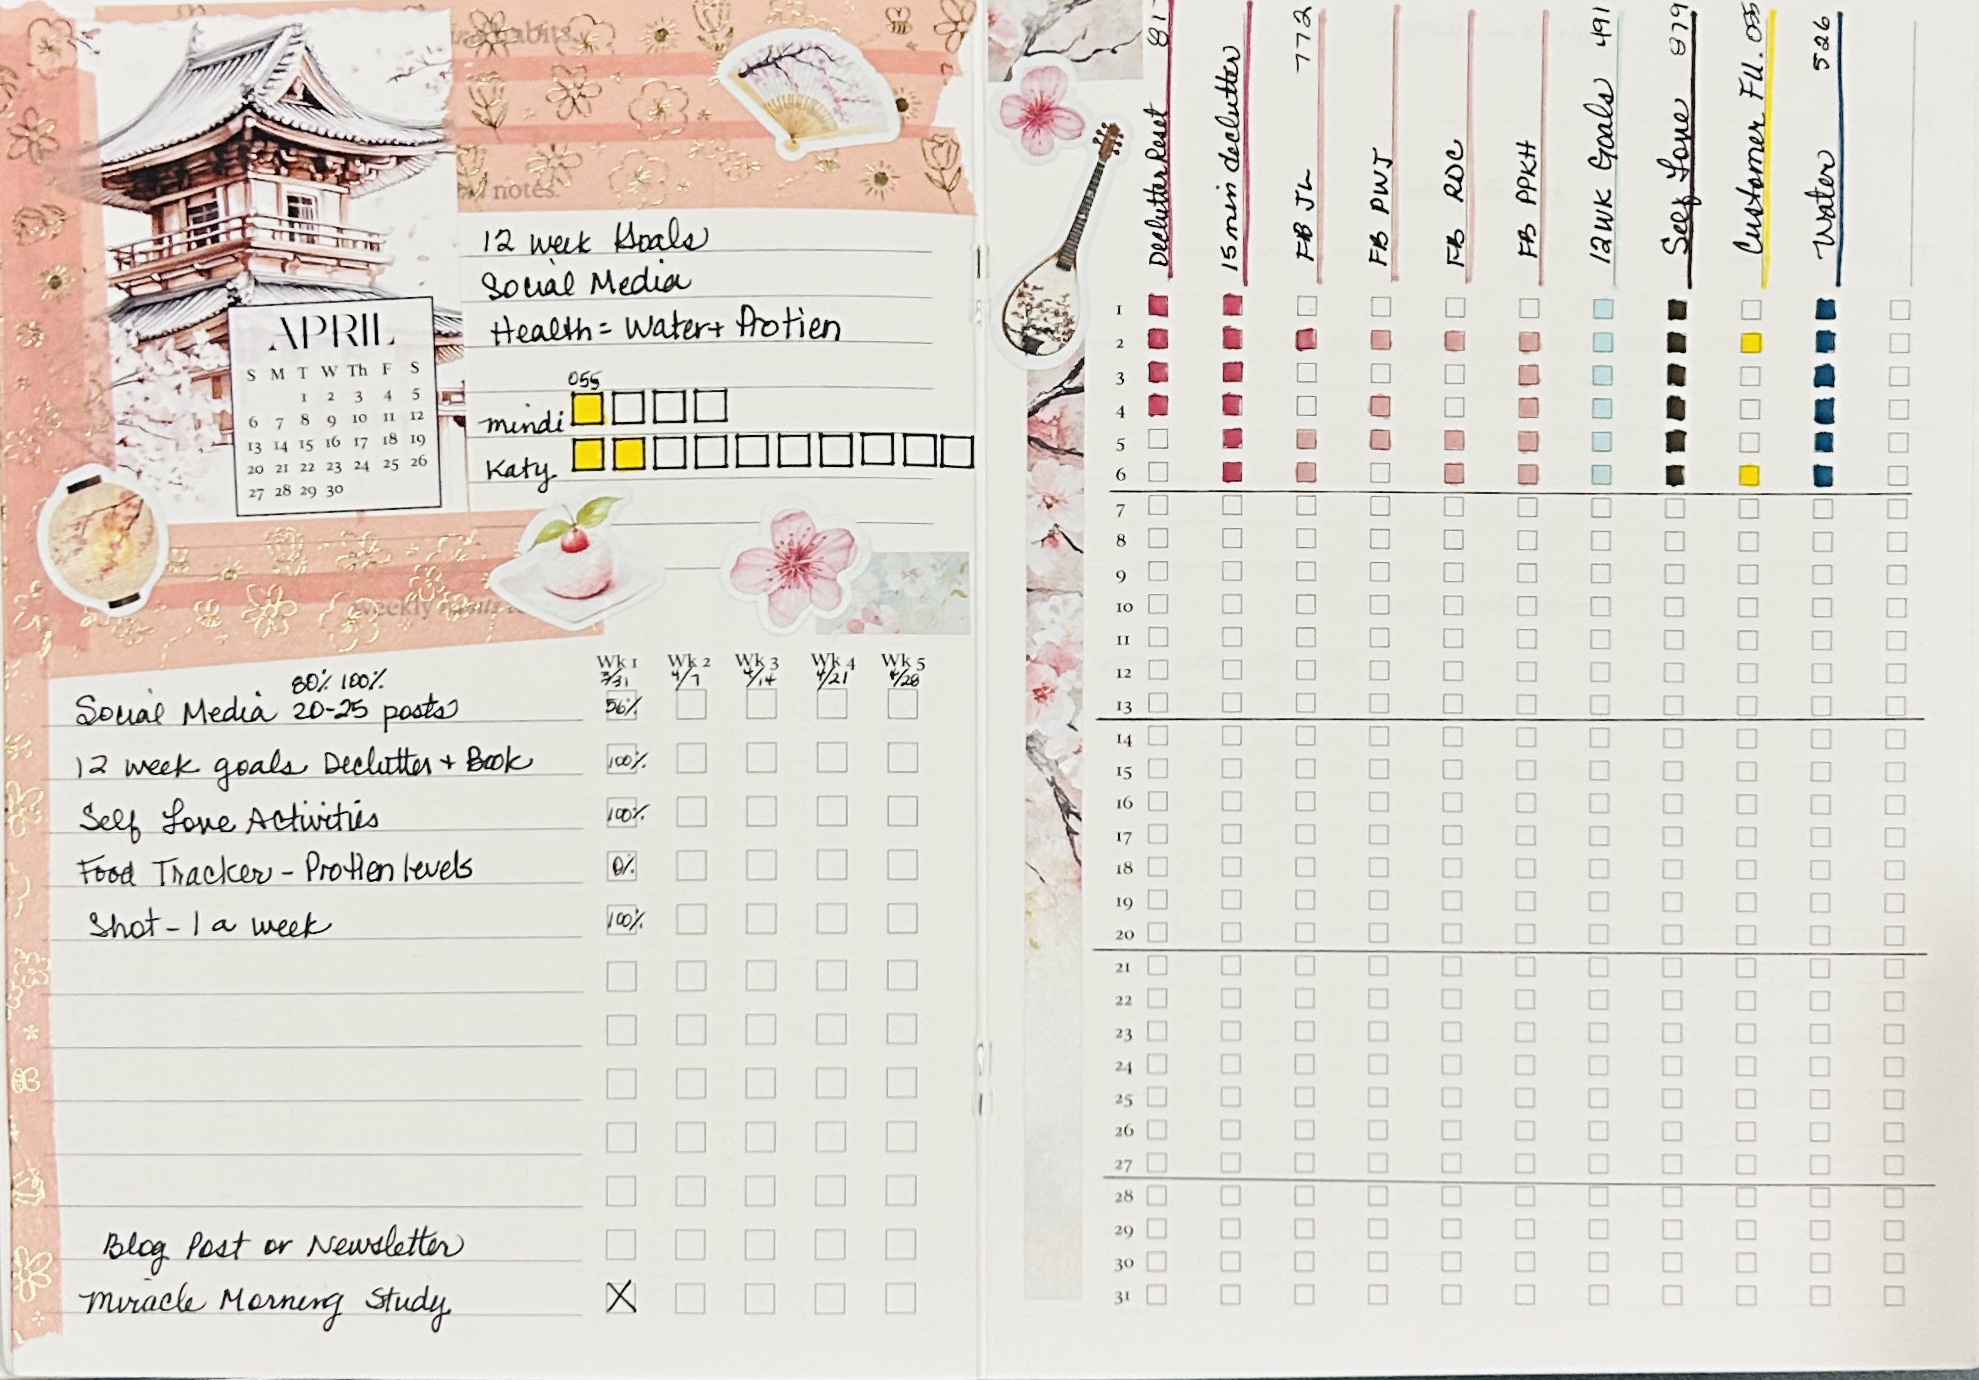 habits.
notes.
12 week Goals
Social Media
Health = Water + Protien
055
mindi
Katy
APRIL
S M T W Th F S
1 2 3 4 5
6 7 8 9 10 11 12
13 14 15 16 17 18 19
20 21 22 23 24 25 26
27 28 29 30
weekly
Wk 1 Wk 2 Wk 3 Wk 4 Wk 5
3/31 4/7 4/14 4/21 4/28
80% 100%
Social Media 20-25 posts 56%
12 week goals Declutter + Book 100%
Self Love Activities 100%
Food Tracker - Protien levels 0%
Shot - 1 a week 100%
Blog Post or Newsletter
Miracle Morning Study X
Declutter Reset 817
15 min declutter
FB JL 772
FB PWJ
FB RDC
FB PPKH
12WK Goals 491
Self Love 879
Customer FU. 055
Water 526
1
2
3
4
5
6
7
8
9
10
11
12
13
14
15
16
17
18
19
20
21
22
23
24
25
26
27
28
29
30
31